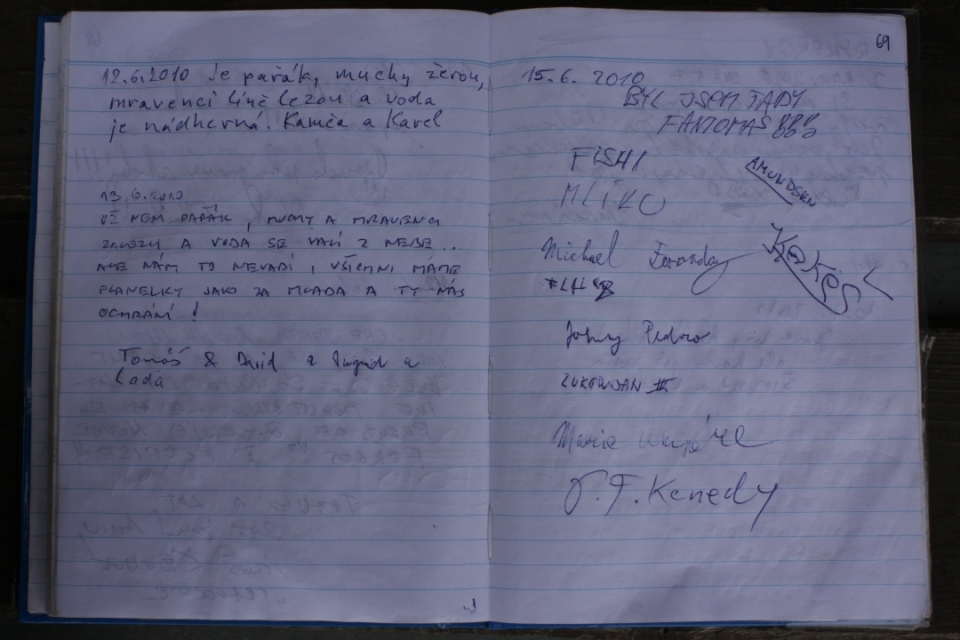 12.6.2010 Je pařák, muchy žerou,
mravenci líně lezou a voda
je nádherná. Kamča a Karel
13.6.2010
UŽ NENÍ PAŘÁK, MUCHY A MRAVENCI
ZALEZLI A VODA SE VALÍ Z NEBE..
ALE NÁM TO NEVADÍ, VŠICHNI MÁME
FLANELKY JAKO ZA MLADA A TY NÁS
OCHRÁNÍ!
Tomáš & David a a
Lada
69
15.6. 2010
BYL JSEM TADY
FANTOMAS
FISHI
AMUNDSEN
MLÍKO
Michael Faraday
Johny Pedoro
Marie
J.F. Kenedy